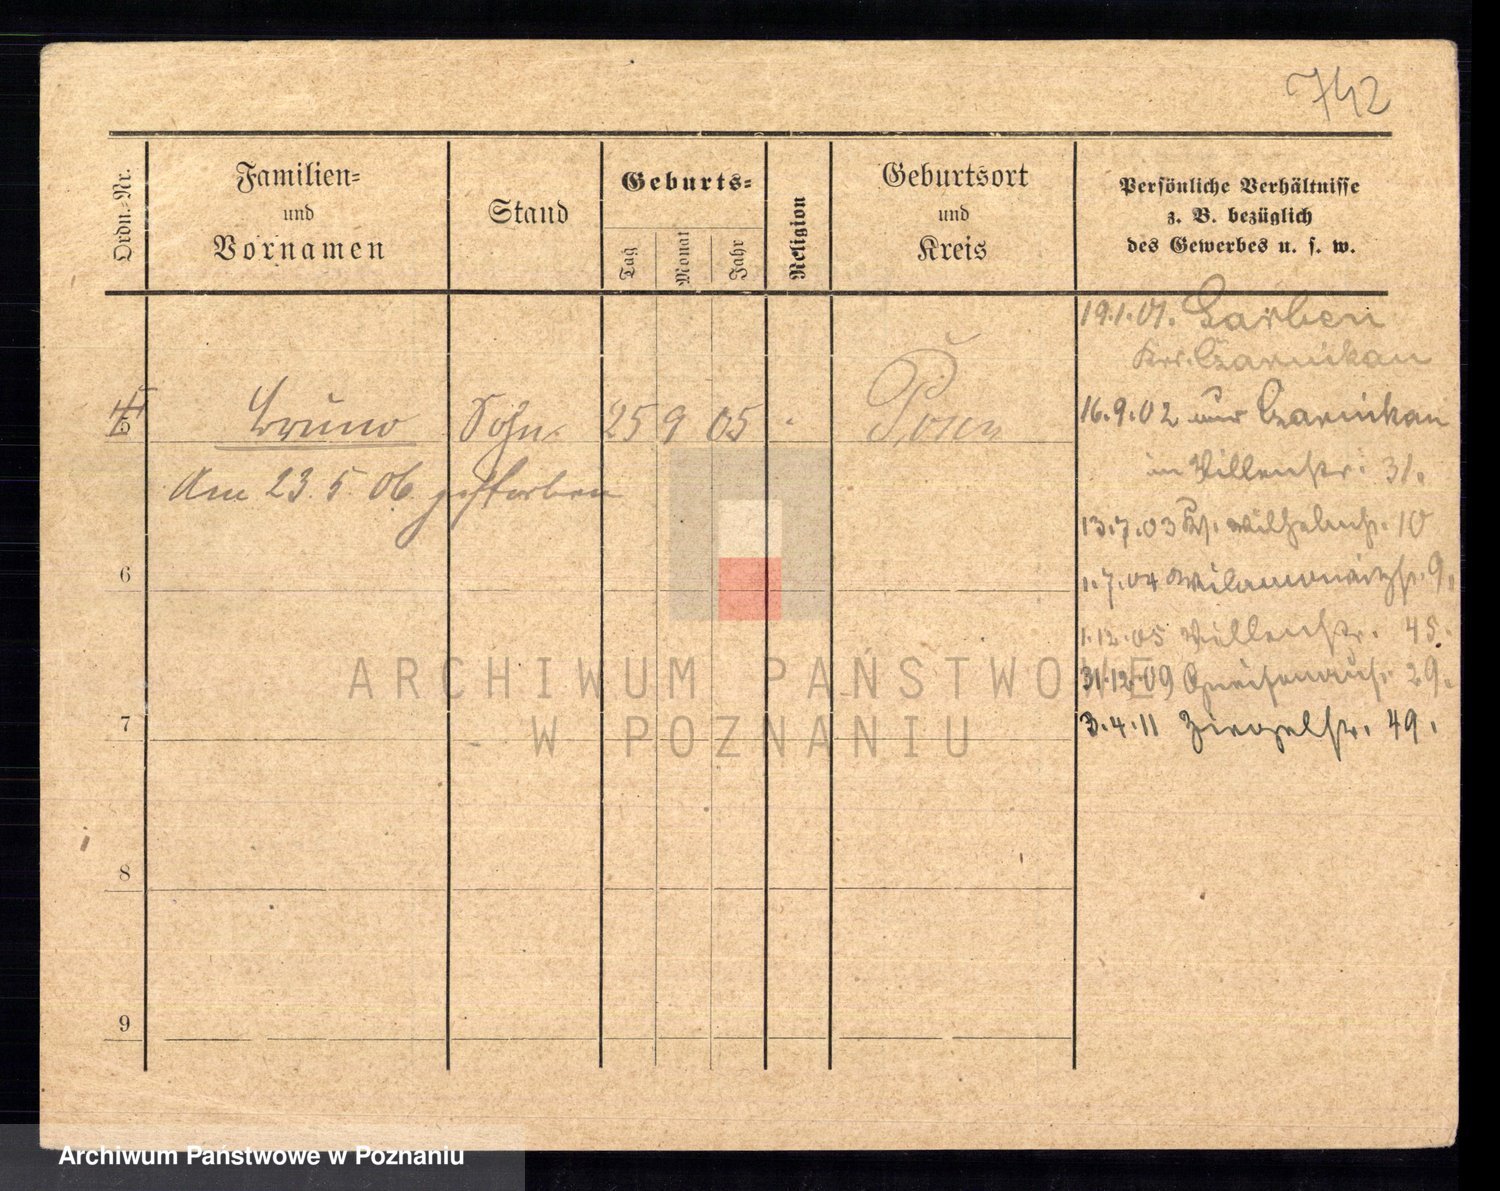 742
Ordn.-Nr.
Familien-
und
Vornamen
Stand
Geburts-
Tag
Monat
Jahr
Religion
Geburtsort
und
Kreis
Persönliche Verhältnisse
z. B. bezüglich
des Gewerbes u. s. w.
19.1.01. Garben
Krs. Czarnikau
5 Bruno Sohn 25 9 05 Posen
16.9.02 Czarnikau
in Villenstr. 31.
Am 23. 5. 06. gestorben
13.7.03 Wilhelmstr. 10
6
1.7.04 9.
1.12.05 Villenstr. 45.
31.12.09 Gneisenaustr. 29.
7
3.4.11 Ziegelstr. 49.
8
9
ARCHIWUM PAŃSTWOWE
W POZNANIU
Archiwum Państwowe w Poznaniu